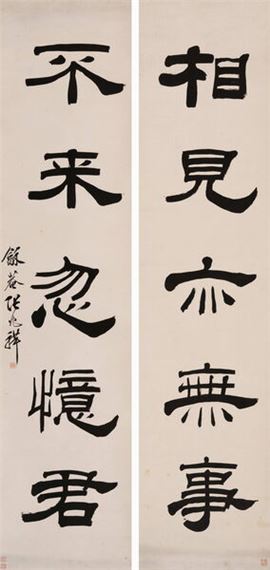 相見亦無事
不来忽憶君
龢菴张兆祥